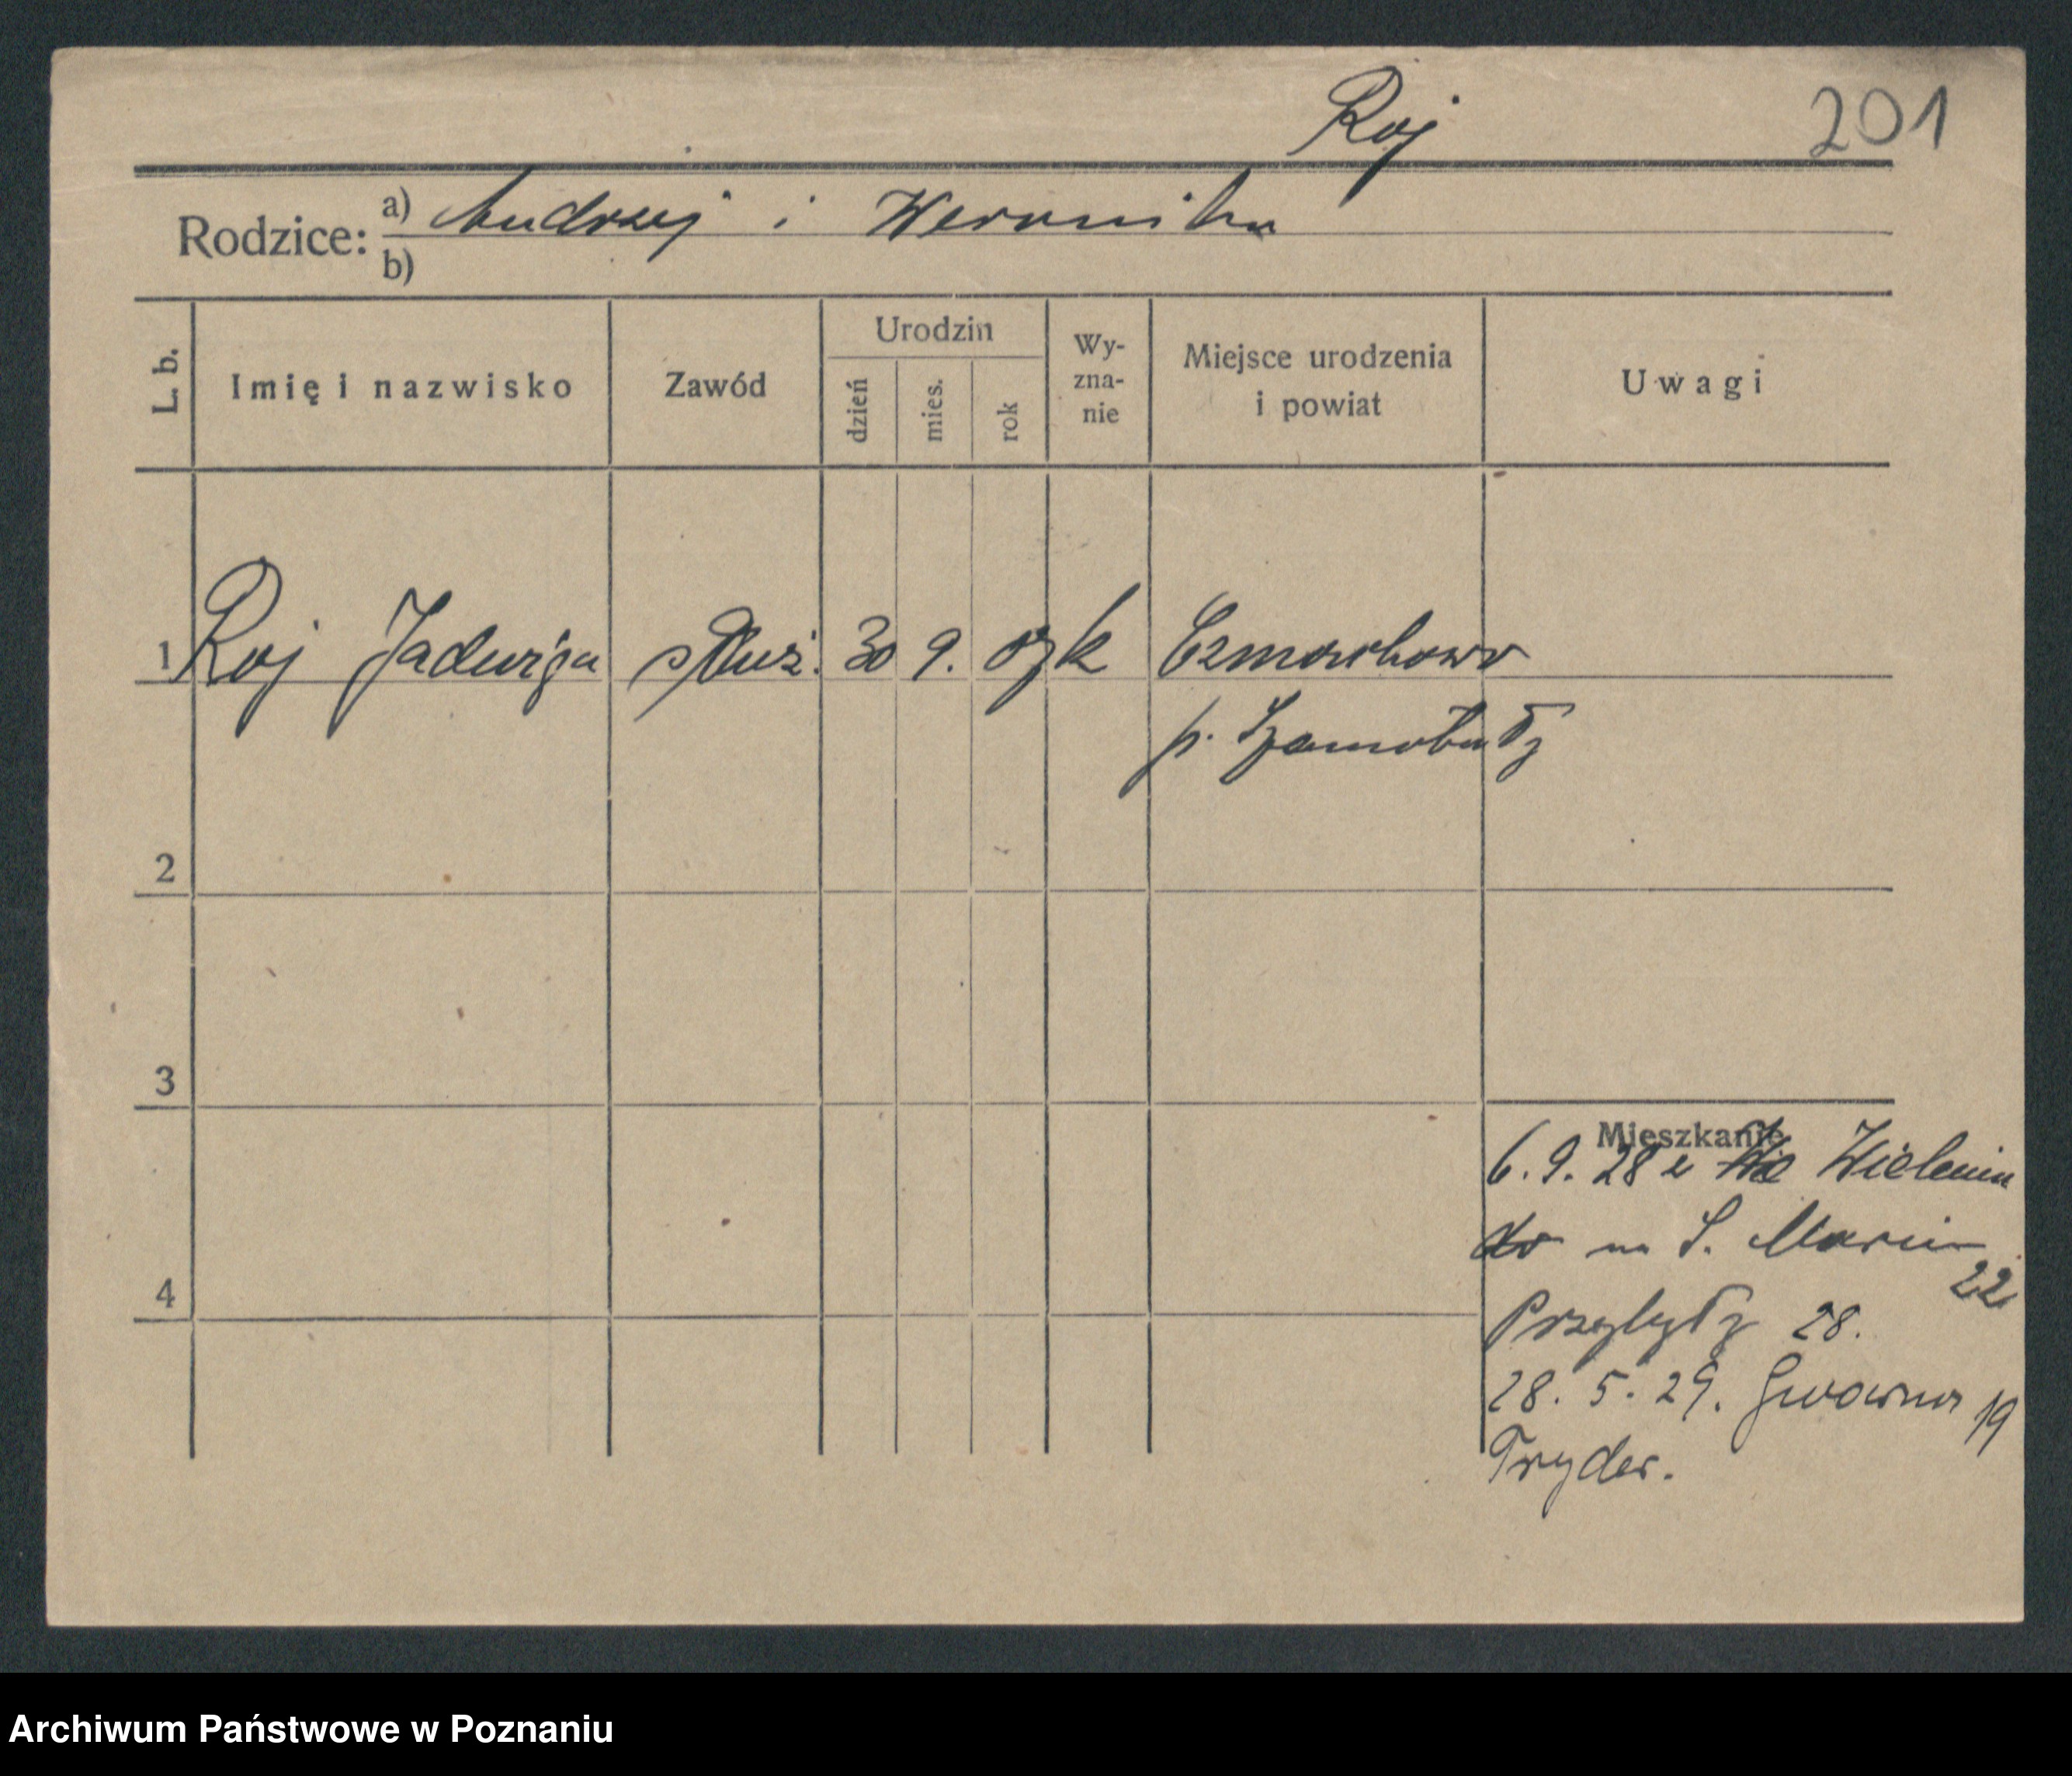 Roj 201
Rodzice: a) Andrzej i Weronika
b)
L. b. Imię i nazwisko Zawód Urodzin dzień mies. rok Wy-zna-nie Miejsce urodzenia i powiat Uwagi
1 Roj Jadwiga służ. 30 9. 07 k Czmachowo
p. Szamotuły
2
3
4
Mieszkanie
6. 9. 28 z Wie Wielenin
do na S. Marcin
22
Przybyły 28.
28. 5. 29. Gwarna 19
Tryder.
Archiwum Państwowe w Poznaniu